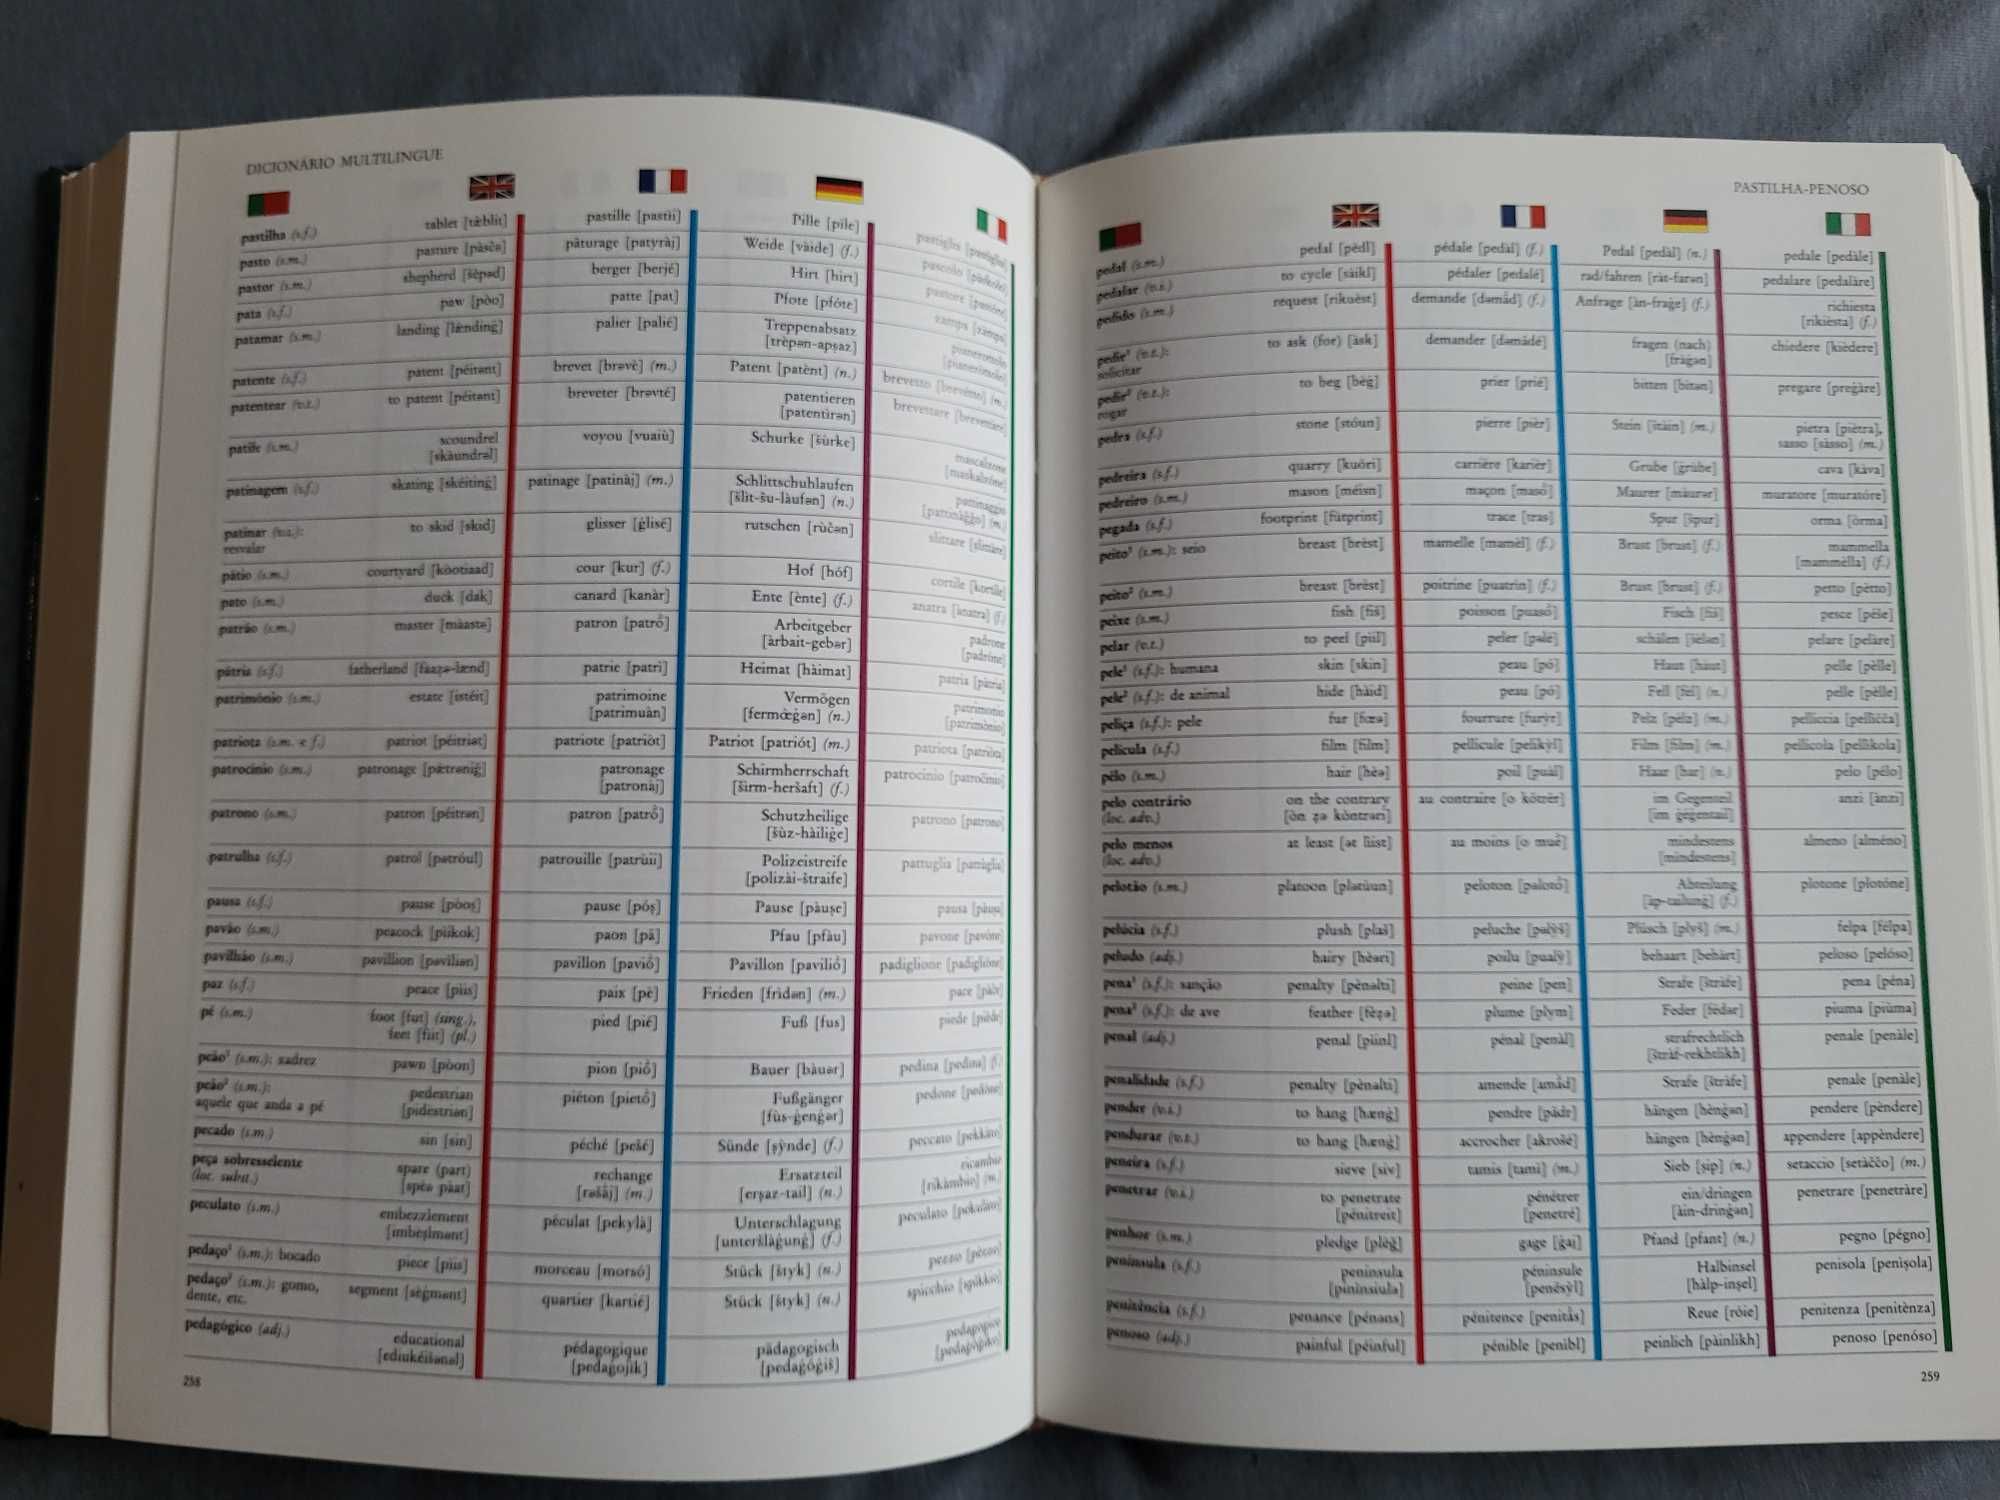 DICIONÁRIO MULTILINGUE
pastilha (s.f.) tablet [tæ̀blit] pastille [pastìi] Pille [pìle] pastiglia [pastìglia]
pasto (s.m.) pasture [pàsčə] pâturage [patyràj] Weide [vàide] (f.) pascolo [pàskolo]
pastor (s.m.) shepherd [šèpəd] berger [berjé] Hirt [hirt] pastore [pastóre]
pata (s.f.) paw [pòo] patte [pat] Pfote [pfóte] zampa
patamar (s.m.) landing [lændinġ] palier [palié] Treppenabsatz pianerottolo
[trèpən-apṣaz] [pianeròttolo]
patente (s.f.) patent [péitənt] brevet [brəvè] (m.) Patent [patènt] (n.) brevetto [brevétto] (m.)
patentear (v.t.) to patent [péitənt] breveter [brəvté] patentieren brevettare [brevettàre]
[patentìrən]
patife (s.m.) scoundrel voyou [vuaiù] Schurke [šùrke] mascalzone
[skàundrəl] [maskalzóne]
patinagem (s.f.) skating [skéitinġ] patinage [patinàj] (m.) Schlittschuhlaufen pattinaggio
[šlit-šu-làufən] (n.) [pattinàġġo] (m.)
patinar (v.i.): to skid [skid] glisser [ġlisé] rutschen [rùčən] slittare [slittàre]
resvalar
pátio (s.m.) courtyard [kòotiaad] cour [kur] (f.) Hof [hóf] cortile [kortìle]
pato (s.m.) duck [dak] canard [kanàr] Ente [ènte] (f.) anatra [ànatra] (f.)
patrão (s.m.) master [màastə] patron [patrõ̀] Arbeitgeber padrone
[àrbait-gebər] [padróne]
pátria (s.f.) fatherland [faaẓə-lænd] patrie [patrì] Heimat [hàimat] patria [pàtria]
património (s.m.) estate [istéit] patrimoine Vermögen patrimonio
[patrimuàn] [fermœ̀ġən] (n.) [patrimònio]
patriota (s.m. e f.) patriot [péitriət] patriote [patriòt] Patriot [patriót] (m.) patriota [patriòta]
patrocínio (s.m.) patronage [pætrəniġ] patronage Schirmherrschaft patrocinio [patročìnio]
[patronàj] [šìrm-heršaft] (f.)
patrono (s.m.) patron [péitrən] patron [patrõ̀] Schutzheilige patrono [patrono]
[šùz-hàiliġe]
patrulha (s.f.) patrol [pətróul] patrouille [patrùii] Polizeistreife pattuglia [pattùglia]
[polizài-štraife]
pausa (s.f.) pause [pòoṣ] pause [póṣ] Pause [pàuṣe] pausa [pàuṣa]
pavão (s.m.) peacock [pìikok] paon [pã] Pfau [pfàu] pavone [pavóne]
pavilhão (s.m.) pavillion [pəvìliən] pavillon [paviõ̀] Pavillon [paviliõ̀] padiglione [padiglióne]
paz (s.f.) peace [pìis] paix [pè] Frieden [frìdən] (m.) pace [pàče]
pé (s.m.) foot [fut] (sing.), pied [pié] Fuß [fus] piede [piède]
feet [fiit] (pl.)
peão¹ (s.m.): xadrez pawn [pòon] pion [piõ̀] Bauer [bàuər] pedina [pedìna] (f.)
peão² (s.m.): pedestrian piéton [pietõ̀] Fußgänger pedone [pedóne]
aquele que anda a pé [pidèstriən] [fùs-ġenġər]
pecado (s.m.) sin [sin] péché [pešé] Sünde [ṣỳnde] (f.) peccato [pekkàto]
peça sobresselente spare (part) rechange Ersatzteil ricambio
(loc. subst.) [spèə pàat] [rəšãj] (m.) [erṣaz-tail] (n.) [rikàmbio] (m.)
peculato (s.m.) embezzlement péculat [pekylà] Unterschlagung peculato [pekulàto]
[imbèẓlmənt] [unteršlàġunġ] (f.)
pedaço¹ (s.m.): bocado piece [pìis] morceau [morsó] Stück [štyk] (n.) pezzo [pèzzo]
pedaço² (s.m.): gomo, segment [sèġmənt] quartier [kartié] Stück [štyk] (n.) spicchio [spìkkio]
dente, etc.
pedagógico (adj.) educational pédagogique pädagogisch pedagogico
[ediukéišənəl] [pedaġojìk] [pedaġóġiš] [pedaġòġiko]
258
PASTILHA-PENOSO
pedal (s.m.) pedal [pèdl] pédale [pedàl] (f.) Pedal [pedàl] (n.) pedale [pedàle]
pedalar (v.i.) to cycle [sàikl] pédaler [pedalé] rad/fahren [ràt-farən] pedalare [pedalàre]
pedido (s.m.) request [rikuèst] demande [dəmãd] (f.) Anfrage [àn-fraġe] (f.) richiesta
[rikièsta] (f.)
pedir¹ (v.t.): to ask (for) [àsk] demander [dəmãdé] fragen (nach) chiedere [kièdere]
solicitar [fràġən]
pedir² (v.t.): to beg [bèġ] prier [prié] bitten [bìtən] pregare [preġàre]
rogar
pedra (s.f.) stone [stóun] pierre [pièr] Stein [štàin] (m.) pietra [piètra],
sasso [sàsso] (m.)
pedreira (s.f.) quarry [kuòri] carrière [karièr] Grube [ġrùbe] cava [kàva]
pedreiro (s.m.) mason [méisn] maçon [masõ̀] Maurer [màurər] muratore [muratóre]
pegada (s.f.) footprint [fùtprint] trace [tras] Spur [špur] orma [órma]
peito¹ (s.m.): seio breast [brèst] mamelle [mamèl] (f.) Brust [brust] (f.) mammella
[mammèlla] (f.)
peito² (s.m.) breast [brèst] poitrine [puatrìn] (f.) Brust [brust] (f.) petto [pètto]
peixe (s.m.) fish [fiš] poisson [puasõ̀] Fisch [fiš] pesce [péše]
pelar (v.t.) to peel [piil] peler [pəlé] schälen [šèlən] pelare [pelàre]
pele¹ (s.f.): humana skin [skin] peau [pó] Haut [hàut] pelle [pèlle]
pele² (s.f.): de animal hide [hàid] peau [pó] Fell [fel] (n.) pelle [pèlle]
peliça (s.f.): pele fur [fœə] fourrure [furỳr] Pelz [pelz] (m.) pelliccia [pellìčča]
película (s.f.) film [film] pellicule [pelikỳl] Film [film] (m.) pellicola [pellìkola]
pêlo (s.m.) hair [hèə] poil [puàl] Haar [har] (n.) pelo [pélo]
pelo contrário on the contrary au contraire [o kõtrèr] im Gegenteil anzi [ànzi]
(loc. adv.) [òn ẓə kòntrəri] [im ġéġentail]
pelo menos at least [ət lìist] au moins [o muẽ̀] mindestens almeno [alméno]
(loc. adv.) [mindestens]
pelotão (s.m.) platoon [plətùun] peloton [pəlotõ̀] Abteilung plotone [plotóne]
[àp-tailunġ] (f.)
pelúcia (s.f.) plush [plaš] peluche [pəlỳš] Plüsch [plyš] (m.) felpa [félpa]
peludo (adj.) hairy [hèəri] poilu [pualỳ] behaart [behàrt] peloso [pelóso]
pena¹ (s.f.): sanção penalty [pènəlti] peine [pen] Strafe [štràfe] pena [péna]
pena² (s.f.): de ave feather [fèẓə] plume [plym] Feder [fédər] piuma [piùma]
penal (adj.) penal [pìinl] pénal [penàl] strafrechtlich penale [penàle]
[štràf-rekhtlikh]
penalidade (s.f.) penalty [pènəlti] amende [amãd] Strafe [štràfe] penale [penàle]
pender (v.i.) to hang [hænġ] pendre [pãdr] hängen [hènġən] pendere [pèndere]
pendurar (v.t.) to hang [hænġ] accrocher [akrošé] hängen [hènġən] appendere [appèndere]
peneira (s.f.) sieve [siv] tamis [tamì] (m.) Sieb [ṣip] (n.) setaccio [setàččo] (m.)
penetrar (v.i.) to penetrate pénétrer ein/dringen penetrare [penetràre]
[pénitreit] [penetré] [àin-drinġən]
penhor (s.m.) pledge [plèġ] gage [ġàj] Pfand [pfant] (n.) pegno [pégno]
península (s.f.) peninsula péninsule Halbinsel penisola [penìṣola]
[pinìnsiulə] [penẽsỳl] [hàlp-inṣel]
penitência (s.f.) penance [pénəns] pénitence [penitãs] Reue [róie] penitenza [penitènza]
penoso (adj.) painful [péinful] pénible [penìbl] peinlich [pàinlikh] penoso [penóso]
259